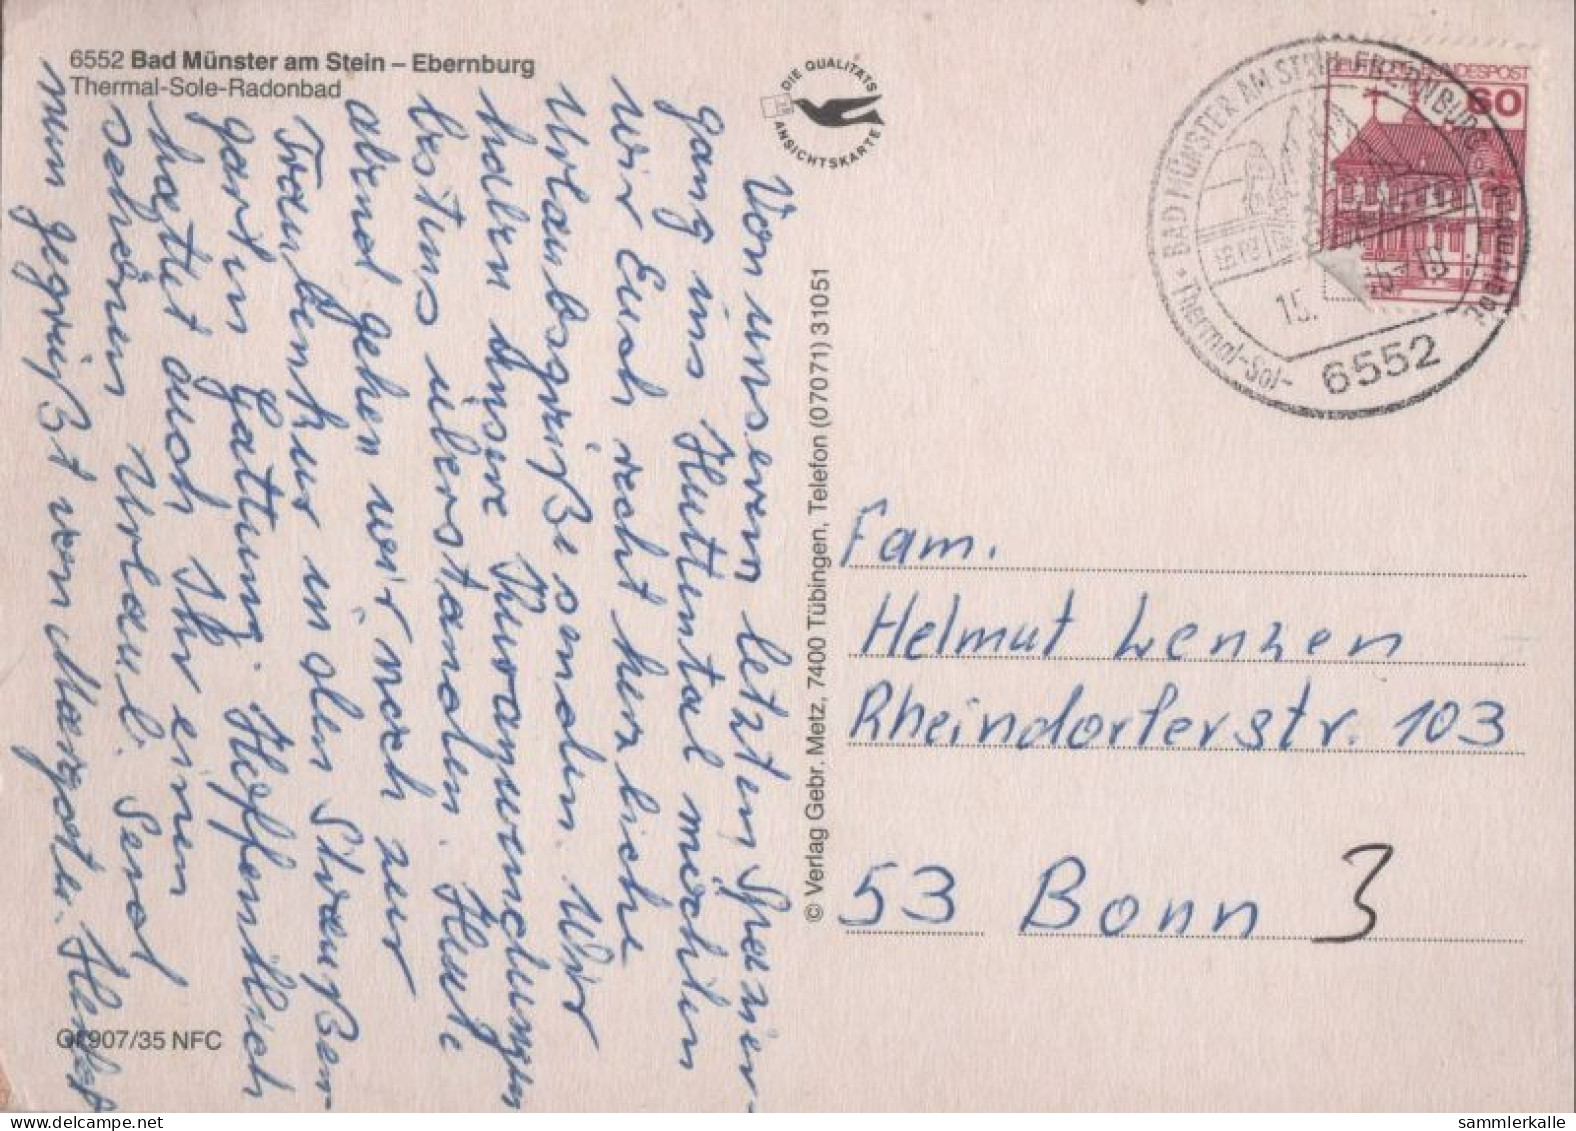 6552 Bad Münster am Stein – Ebernburg
Thermal-Sole-Radonbad
DIE QUALITÄTS
ANSICHTSKARTE
Von unserem letzten Spazier-
gang ins Huttental möchten
wir Euch recht herzliche
Urlaubsgrüße senden. Wir
haben unsere Kuranwendungen
bestens überstanden. Heute
abend gehen wir noch zur
Traubenkur in den Straußen-
garten Gattung. Hoffentlich
hattet auch Ihr einen
schönen Urlaub. Seid
nun gegrüßt von Margotu.
© Verlag Gebr. Metz, 7400 Tübingen, Telefon (07071) 31051
DEUTSCHE BUNDESPOST
60
BAD MÜNSTER AM STEIN-EBERNBURG
Thermal-Sol-
6552
15.
Fam.
Helmut Lenzen
Rheindorferstr. 103
53 Bonn 3
907/35 NFC
sammlerkalle